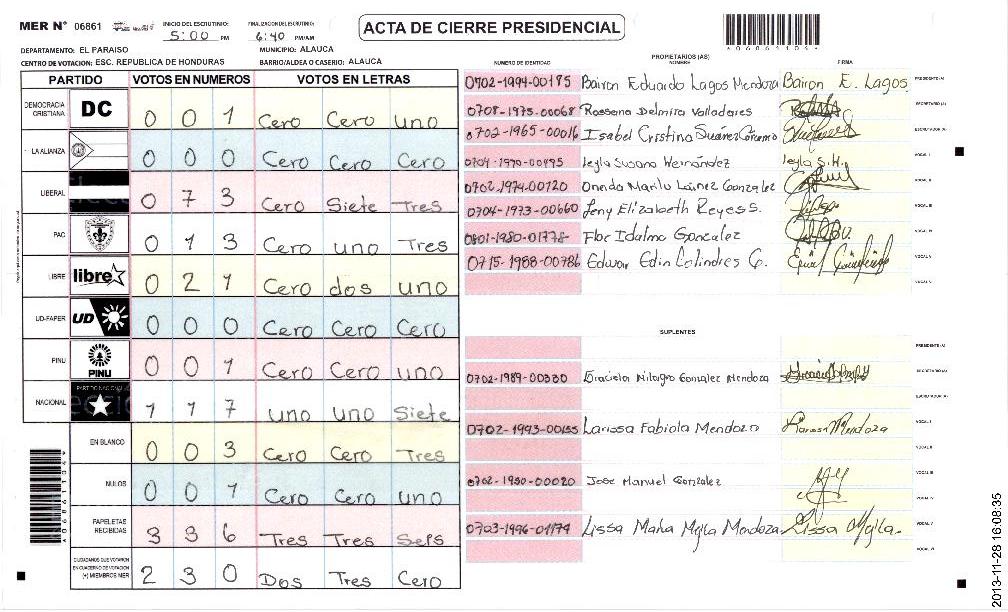 MER N° 06861
INICIO DEL ESCRUTINIO: 5:00 PM
FINALIZACION DEL ESCRUTINIO: 6:40 PM/AM
ACTA DE CIERRE PRESIDENCIAL
*06861104*
DEPARTAMENTO: EL PARAISO
MUNICIPIO: ALAUCA
CENTRO DE VOTACION: ESC. REPUBLICA DE HONDURAS
BARRIO/ALDEA O CASERIO: ALAUCA
PARTIDO VOTOS EN NUMEROS VOTOS EN LETRAS
DEMOCRACIA CRISTIANA DC 0 0 1 Cero Cero uno
LA ALIANZA 0 0 0 Cero Cero Cero
LIBERAL 0 7 3 Cero Siete Tres
PAC 0 1 3 Cero uno Tres
LIBRE libre 0 2 1 Cero dos uno
UD-FAPER UD 0 0 0 Cero Cero Cero
PINU PINU 0 0 1 Cero Cero uno
NACIONAL PARTIDO NACIONAL 1 1 7 uno uno Siete
EN BLANCO 0 0 3 Cero Cero Tres
NULOS 0 0 1 Cero Cero uno
PAPELETAS RECIBIDAS 3 3 6 Tres Tres Seis
CIUDADANOS QUE VOTARON EN CUADERNO DE VOTACION (+) MIEMBROS MER 2 3 0 Dos Tres Cero
*06861104*
PROPIETARIOS (AS)
NUMERO DE IDENTIDAD NOMBRE FIRMA
0702-1994-00175 Bairon Eduardo Lagos Mendoza Bairon E. Lagos PRESIDENTE (A)
0708-1975-00068 Rossana Delmira Valladares SECRETARIO (A)
0702-1965-00016 Isabel Cristina Suánez ESCRUTADOR (A)
0704-1970-00495 leyla Susana Hernández leyla S.H. VOCAL I
0702-1974-00720 Oneida Marilu Láinez Gonzalez VOCAL II
0704-1973-00660 Leny Elizabeth Reyes S. VOCAL III
0801-1980-01778- Flor Idalma Gonzalez VOCAL IV
0715-1988-00786 Edwar Edin Colindres G. VOCAL V
VOCAL VI
SUPLENTES
PRESIDENTE (A)
0702-1989-00330 Graciela Milagro Gonzalez Mendoza SECRETARIO (A)
ESCRUTADOR (A)
0702-1993-00155 Larissa Fabiola Mendoza Larissa Mendoza VOCAL I
VOCAL II
0702-1950-00020 Jose Manuel Gonzalez VOCAL III
VOCAL IV
0703-1996-01174 Lissa Maria Mejia Mendoza Lissa Mejia. VOCAL V
VOCAL VI
2013-11-28 16:08:35